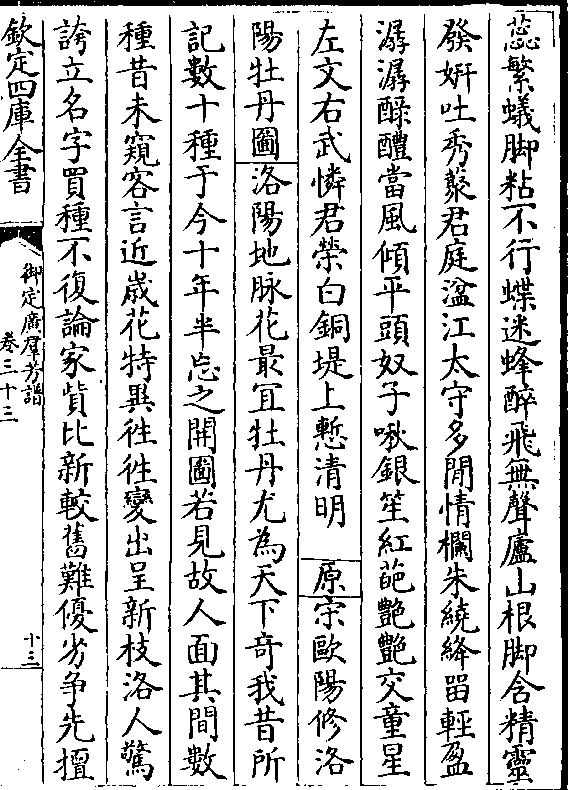 蕊繁蟻脚粘不行蝶迷蜂醉飛無聲廬山根脚含精靈
發妍吐秀藂君庭湓江太守多閒情欄朱繞絳留輕盈
潺潺醁醴當風傾平頭奴子啾銀笙紅葩艷艷交童星
左文右武憐君榮白銅堤上慙清明　原宋歐陽修洛
陽牡丹圖洛陽地脉花最宜牡丹尤為天下奇我昔所
記數十種于今十年半忘之開圖若見故人面其間數
種昔未窺客言近歲花特異徃徃變出呈新枝洛人驚
誇立名字買種不復論家貲比新較舊難優劣争先擅
欽定四庫全書
御定廣羣芳譜
卷三十三
十三